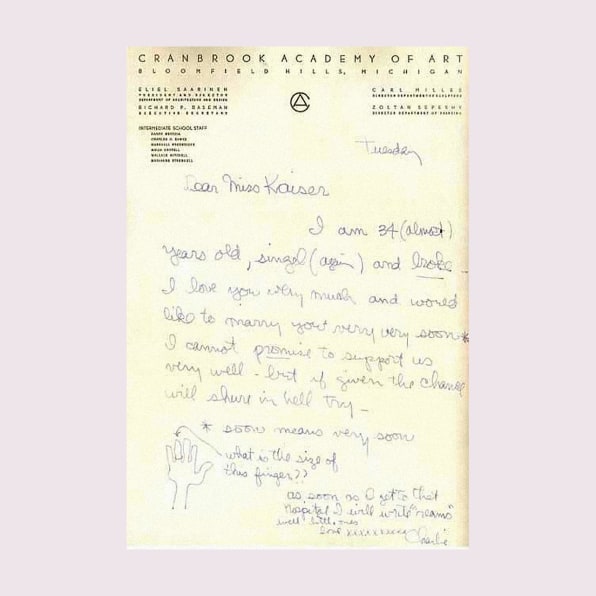 CRANBROOK ACADEMY OF ART
BLOOMFIELD HILLS, MICHIGAN
ELIEL SAARINEN
PRESIDENT AND DIRECTOR
DEPARTMENT OF ARCHITECTURE AND DESIGN
RICHARD P. RASEMAN
EXECUTIVE SECRETARY
CARL MILLES
DIRECTOR DEPARTMENT OF SCULPTURE
ZOLTAN SEPESHY
DIRECTOR DEPARTMENT OF PAINTING
INTERMEDIATE SCHOOL STAFF
HARRY BERTOIA
CHARLES O. EAMES
MARSHALL FREDERICKS
MAIJA GROTELL
WALLACE MITCHELL
MARIANNE STRENGELL
Tuesday
Dear Miss Kaiser
I am 34 (almost)
years old, singel (again) and broke –
I love you very much and would
like to marry you very very soon*
I cannot promise to support us
very well – but if given the chance
will shure in hell try –
* soon means very soon
what is the size of
this finger??
as soon as I get to that
hospital I will write "reams"
well little ones
love xxxxxxxxxx Charlie